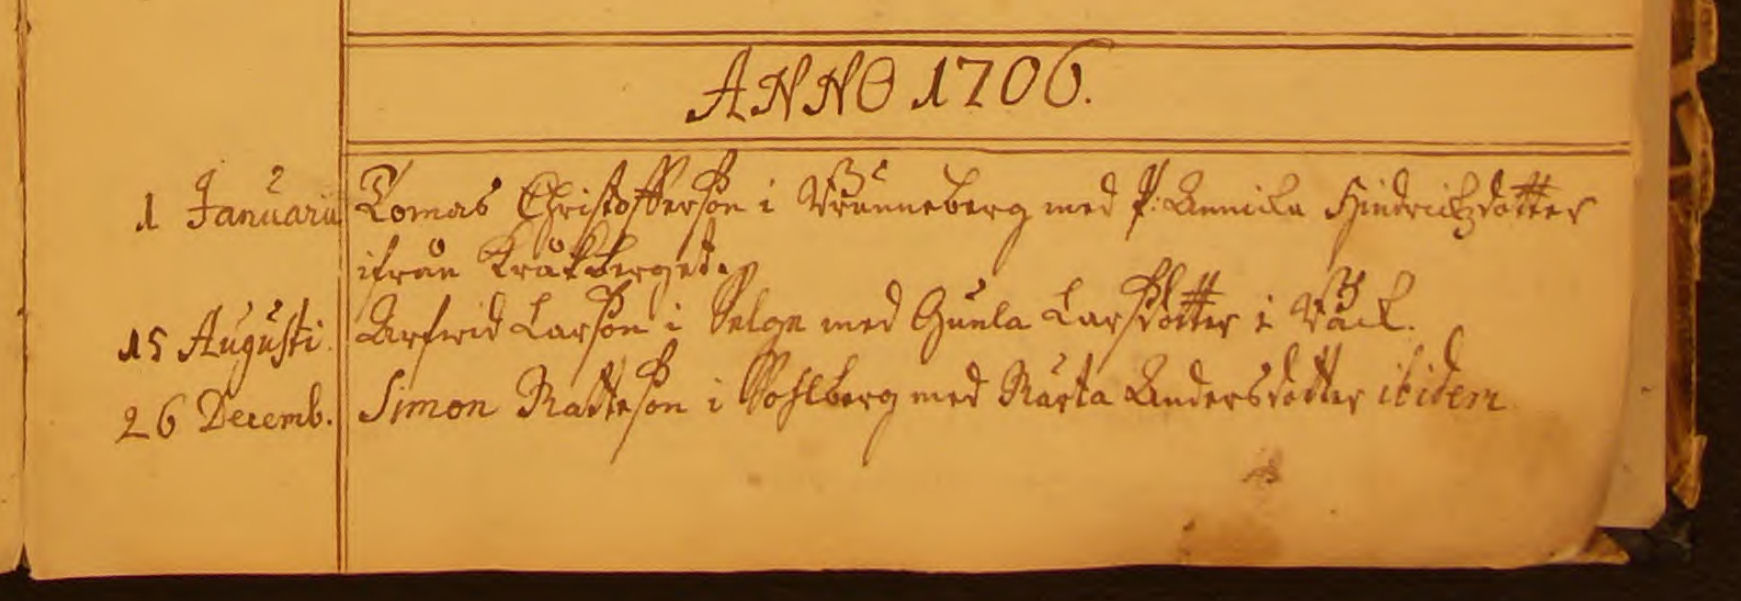 ANNO 1706.
1 Januarii Tomas Christofferson i Brunneberg med P. Annicka Hindrichzdotter
ifrån Kråkberget.
15 Augusti. Arfwid Larson i Selge med Gunla Larsdotter i Bäck.
26 Decemb. Simon Matteson i Mohlberg med Märta Andersdotter ibidem